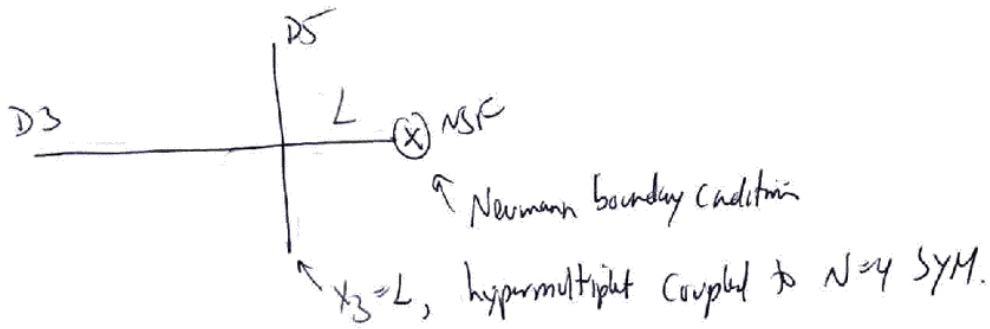 D5
D3
L
X NS5
Neumann boundary condition
x₃=L, hypermultiplet coupled to N=4 SYM.